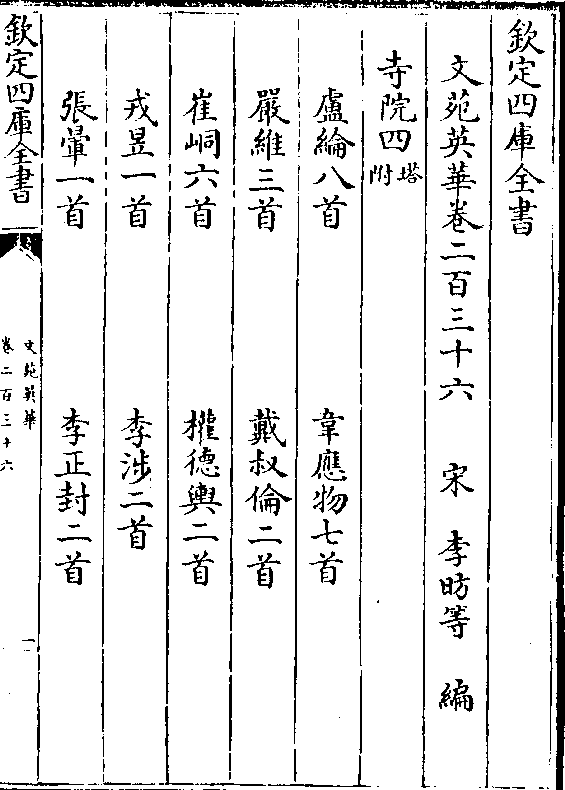 欽定四庫全書
文苑英華卷二百三十六　宋　李昉等　編
寺院四塔附
盧綸八首　韋應物七首
嚴維三首　戴叔倫二首
崔峒六首　權德輿二首
戎昱一首　李涉二首
張暈一首　李正封二首
欽定四庫全書
文苑英華
卷二百三十六
一